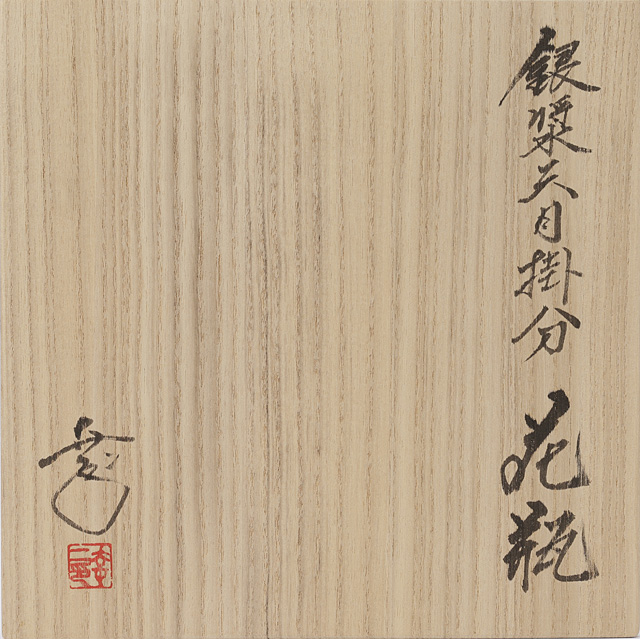 銀漿天目掛分 花瓶